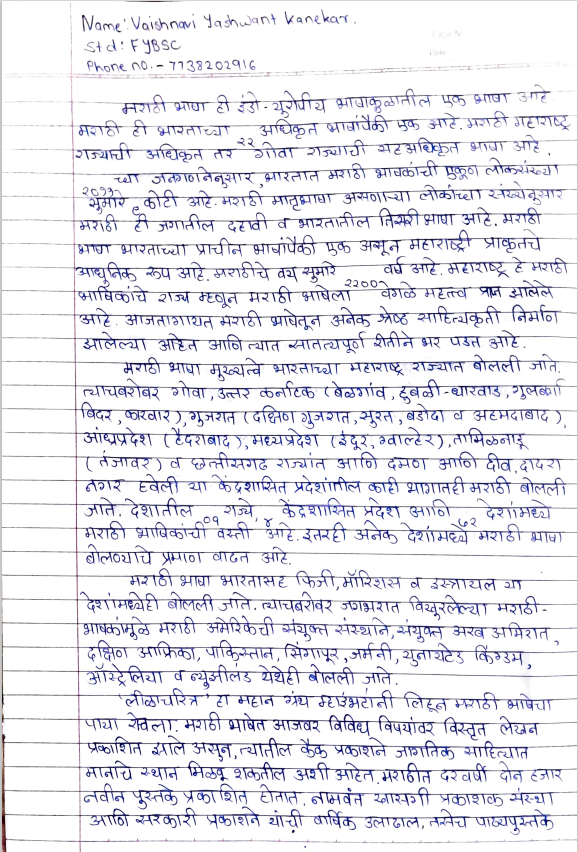 Name: Vaishnavi Yashwant Kanekar.
Std: FYBSC
Phone no. - 7738202916
Page No
Date
मराठी भाषा ही इंडो-युरोपीय भाषाकुळातील एक भाषा आहे
मराठी ही भारताच्या २२ अधिकृत भाषांपैकी एक आहे. मराठी महाराष्ट्र
राज्याची अधिकृत तर गोवा राज्याची सहअधिकृत भाषा आहे.
२०११ च्या जनगणनेनुसार, भारतात मराठी भाषकांची एकूण लोकसंख्या
सुमारे ९ कोटी आहे. मराठी मातृभाषा असणाऱ्या लोकांच्या संख्येनुसार
मराठी ही जगातील दहावी व भारतातील तिसरी भाषा आहे. मराठी
भाषा भारताच्या प्राचीन भाषांपैकी एक असून महाराष्ट्री प्राकृतचे
आधुनिक रूप आहे. मराठीचे वय सुमारे २२०० वर्ष आहे. महाराष्ट्र हे मराठी
भाषिकांचे राज्य म्हणून मराठी भाषेला वेगळे महत्त्व प्राप्त झालेले
आहे. आजतागायत मराठी भाषेतून अनेक श्रेष्ठ साहित्यकृती निर्माण
झालेल्या आहेत आणि त्यात सातत्यपूर्ण रीतीने भर पडत आहे.
मराठी भाषा मुख्यत्वे भारताच्या महाराष्ट्र राज्यात बोलली जाते.
त्याचबरोबर गोवा, उत्तर कर्नाटक (बेळगांव, हुबळी-धारवाड, गुलबर्गा
बिदर, कारवार), गुजरात (दक्षिण गुजरात, सुरत, बडोदा व अहमदाबाद),
आंध्रप्रदेश (हैदराबाद), मध्यप्रदेश (इंदूर, ग्वाल्हेर), तामिळनाडू
(तंजावर) व छत्तीसगढ राज्यांत आणि दमण आणि दीव, दादरा
नगर हवेली या केंद्रशासित प्रदेशांतील काही भागातही मराठी बोलली
जाते. देशातील ०९ राज्ये, ४ केंद्रशासित प्रदेश आणि ७२ देशांमध्ये
मराठी भाषिकांची वस्ती आहे. इतरही अनेक देशांमध्ये मराठी भाषा
बोलण्याचे प्रमाण वाढत आहे.
मराठी भाषा भारतासह फिजी, मॉरिशस व इस्त्रायल या
देशांमध्येही बोलली जाते. त्याचबरोबर जगभरात विखुरलेल्या मराठी-
भाषकांमुळे मराठी अमेरिकेची संयुक्त संस्थाने, संयुक्त अरब अमिरात,
दक्षिण आफ्रिका, पाकिस्तान, सिंगापूर, जर्मनी, युनायटेड किंग्डम,
ऑस्ट्रेलिया व न्यूझीलंड येथेही बोलली जाते.
'लीळाचरित्र' हा महान ग्रंथ म्हाइंभटांनी लिहून मराठी भाषेचा
पाया रोवला. मराठी भाषेत आजवर विविध विषयांवर विस्तृत लेखन
प्रकाशित झाले असुन, त्यातील कैक प्रकाशने जागतिक साहित्यात
मानाचे स्थान मिळवू शकतील अशी आहेत. मराठीत दरवर्षी दोन हजार
नवीन पुस्तके प्रकाशित होतात. नामवंत खासगी प्रकाशक संस्था
आणि सरकारी प्रकाशने यांची वार्षिक उलाढाल, तसेच पाठ्यपुस्तके